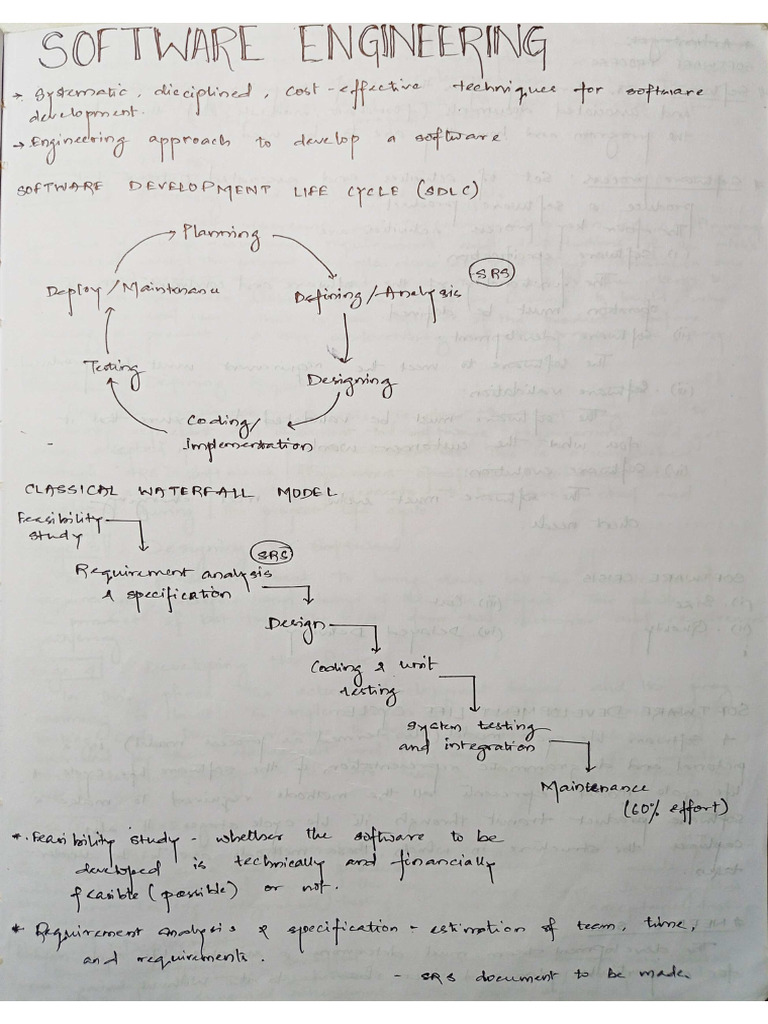 SOFTWARE ENGINEERING
→ Systematic, disciplined, cost-effective techniques for software
development.
→ Engineering approach to develop a software
SOFTWARE DEVELOPMENT LIFE CYCLE (SDLC)
Planning
SRS
Deploy/Maintenance
Defining/Analysis
Testing
Designing
Coding/
implementation
CLASSICAL WATERFALL MODEL
Feasibility
study
SRS
Requirement analysis
& specification
Design
Coding & unit
testing
System testing
and integration
Maintenance
(60% effort)
* Feasibility study - whether the software to be
developed is technically and financially
feasible (possible) or not.
* Requirement analysis & specification - estimation of team, time,
and requirements.
- SRS document to be made.